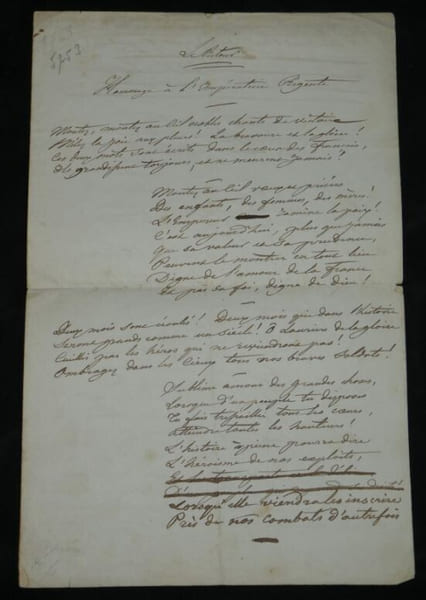 5253
Le Retour
Hommage à l'Impératrice Régente
Montez, montez au Ciel nobles chants de victoire,
Mêlez la joie aux pleurs! La bravoure et la gloire!
Ces deux mots sont écrits dans le cœur des Français,
Ils grandissent toujours, et ne meurent jamais!
Montez au Ciel vœux et prières
Des enfants, des femmes, des mères!
L'Empereur ramène la paix!
C'est aujourd'hui, plus que jamais
Que sa valeur et sa prudence,
Peuvent le montrer en tout lieu
Digne de l'amour de la France
Et par sa foi, digne de Dieu!
Deux mois sont écoulés! Deux mois que dans l'histoire
Seront grands comme un Siècle! O Lauriers de la gloire
Cueillis par les héros qui ne reviendront pas!
Ombragez dans les Cieux tous nos braves Soldats!
Sublime amour des grandes choses,
Lorsque d'un peuple tu disposes
Tu fais tressaillir tous les cœurs,
Atteindre toutes les hauteurs!
L'histoire à peine pourra dire
L'héroïsme de nos exploits,
Lorsqu'elle viendra les inscrire
Près de nos combats d'autrefois